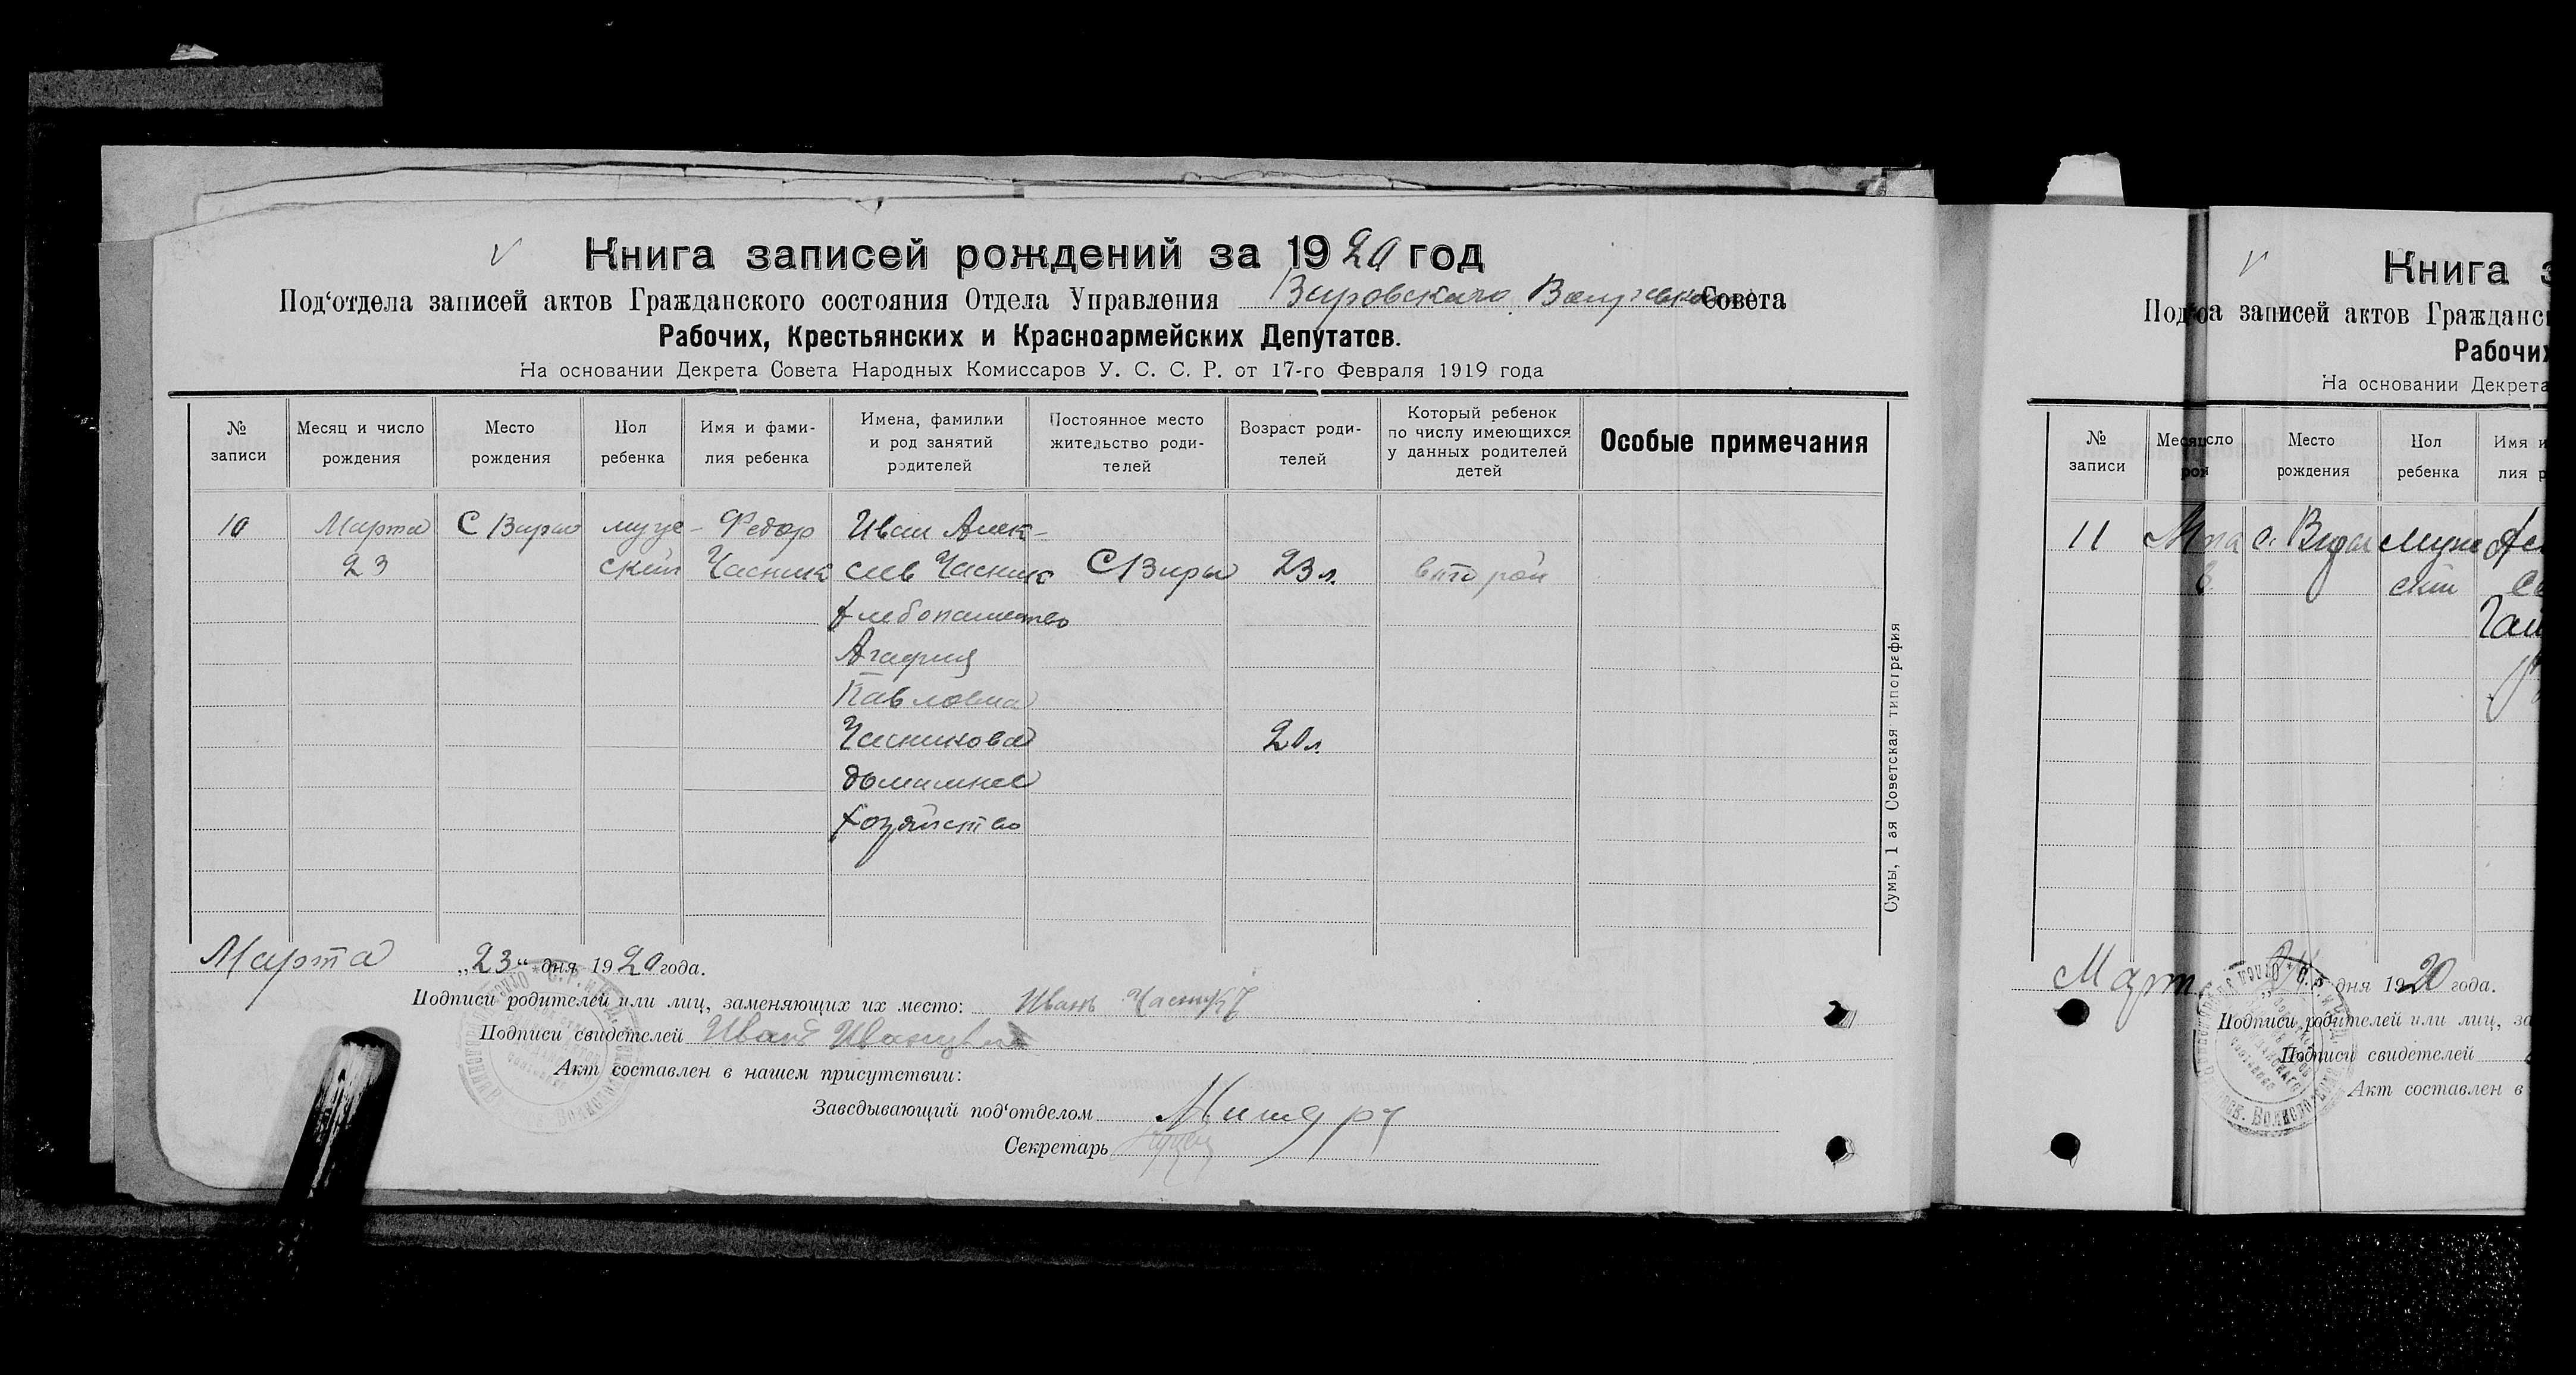 Книга записей рождений за 1920 год
Под‘отдела записей актов Гражданского состояния Отдела Управления Вировского Совета
Рабочих, Крестьянских и Красноармейских Депутатов.
На основании Декрета Совета Народных Комиссаров У. С. С. Р. от 17-го Февраля 1919 года
№ записи
Месяц и число рождения
Место рождения
Пол ребенка
Имя и фами-
лия ребенка
Имена, фамилии
и род занятий
родителей
Постоянное место
жительство роди-
телей
Возраст роди-
телей
Который ребенок
по числу имеющихся
у данных родителей
детей
Особые примечания
10 Марта С Виры муже- Федор Иван Алек-
23 ский Часник сив Часник С Виры 23 л. второй
хлебопашество
Агафия
Павловна
Часникова 20 л.
домашнее
хозяйство
Сумы, 1 ая Советская типография
Марта „23“ дня 1920 года.
Подписи родителей или лиц, заменяющих их место: Иванъ Часникъ
Подписи свидетелей Иван
Акт составлен в нашем присутствии:
Заведывающий под‘отделом
Секретарь
Книга з
записей актов Гражданс
Рабочих
На основании Декрета
№
записи
Место
рождения
Пол
ребенка
Имя и
лия р
11 с. Виры муже
ский
дня 1920 года.
Подписи родителей или лиц, за
Подписи свидетелей
Акт составлен в